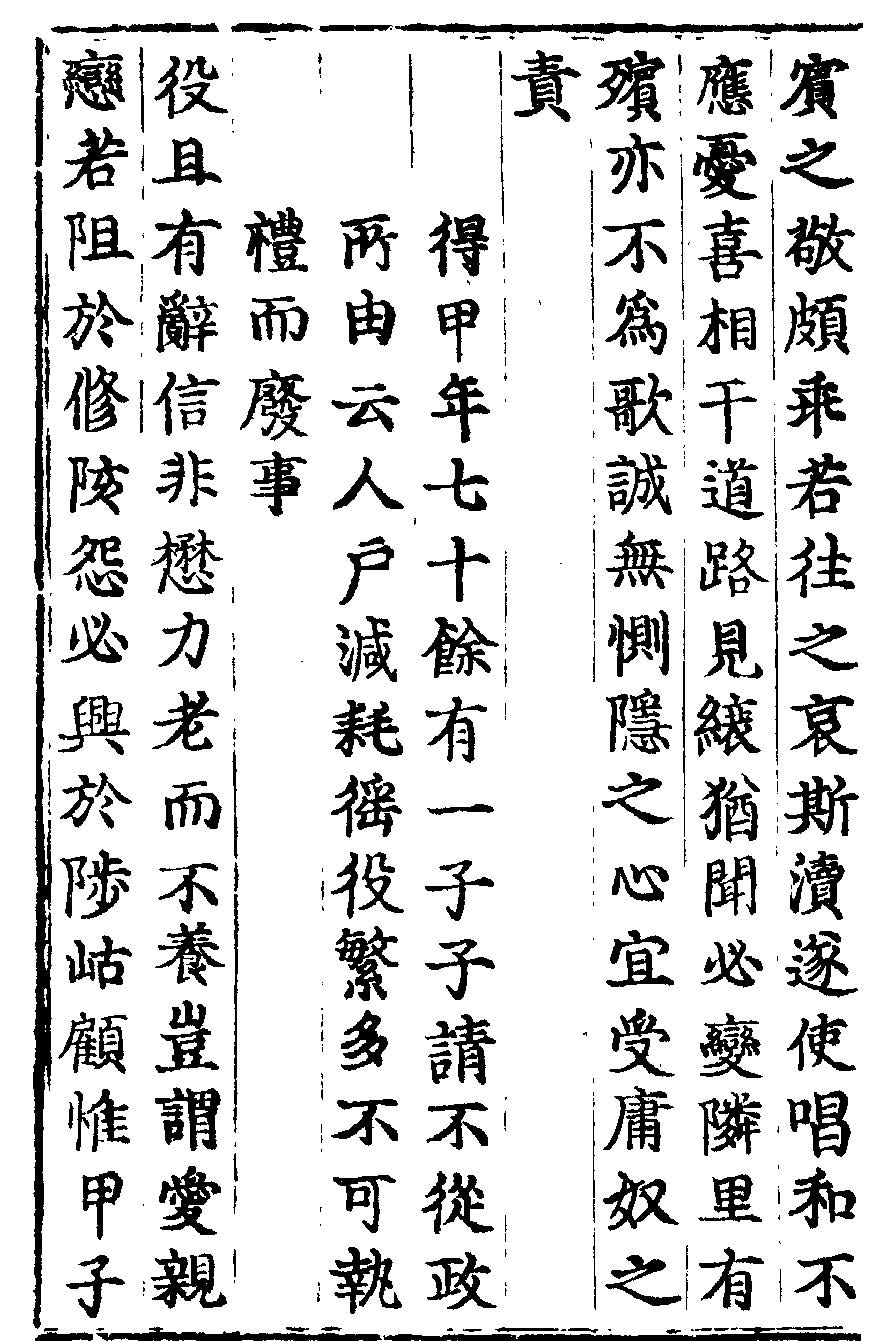 賓之敬頗乖若往之哀斯瀆遂使唱和不
應憂喜相干道路見縗猶聞必變隣里有
殯亦不爲歌誠無惻隱之心宜受庸奴之
責
得甲年七十餘有一子子請不從政
所由云人户減耗徭役繁多不可執
禮而廢事
役且有辭信非懋力老而不養豈謂愛親
戀若阻於修陔怨必興於陟岵顧惟甲子